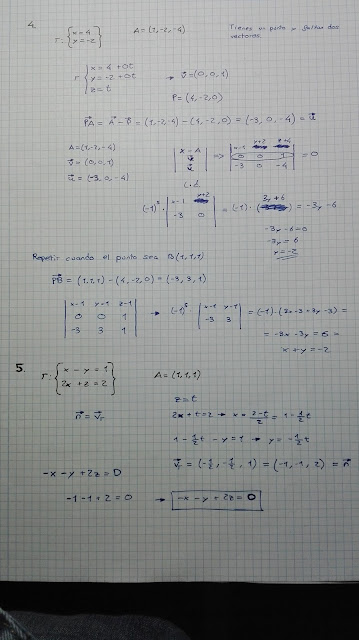 4.
r: { x = 4
y = -2 }
A = (1, -2, -4)
Tienes un punto y faltan dos
vectores.
r: { x = 4 + 0t
y = -2 + 0t
z = t
→ v⃗ = (0, 0, 1)
P = (4, -2, 0)
A = (1, -2, -4)
v⃗ = (0, 0, 1)
u⃗ = (-3, 0, -4)
| x - A
v⃗
u⃗ |
⇒
| x-1 y+2 z+4
0 0 1
-3 0 -4 | = 0
| x-1 y+2
-3 0 |
3y + 6
= -3y - 6
-3y - 6 = 0
-3y = 6
y = -2
Repetir cuando el punto sea B (1, 1, 1)
PB⃗ = (1, 1, 1) - (4, -2, 0) = (-3, 3, 1)
| x-1 y-1 z-1
0 0 1
-3 3 1 |
→
| x-1 y-1
-3 3 |
= (-1) · (3x - 3 + 3y - 3) =
x + y = -2
5.
r: { x - y = 1
2x + z = 2 }
A = (1, 1, 1)
n⃗ = v⃗r
z = t
2x + t = 2 → x = (2 - t)/2 = 1 - 1/2 t
1 - 1/2 t - y = 1 → y = -1/2 t
v⃗r = (-1/2, -1/2, 1) = (-1, -1, 2) = n⃗
-x - y + 2z = D
-1 - 1 + 2 = 0 → -x - y + 2z = 0